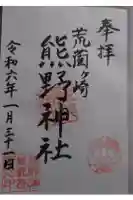 奉拝
荒薗ヶ崎
熊野神社
令和六年一月三十一日